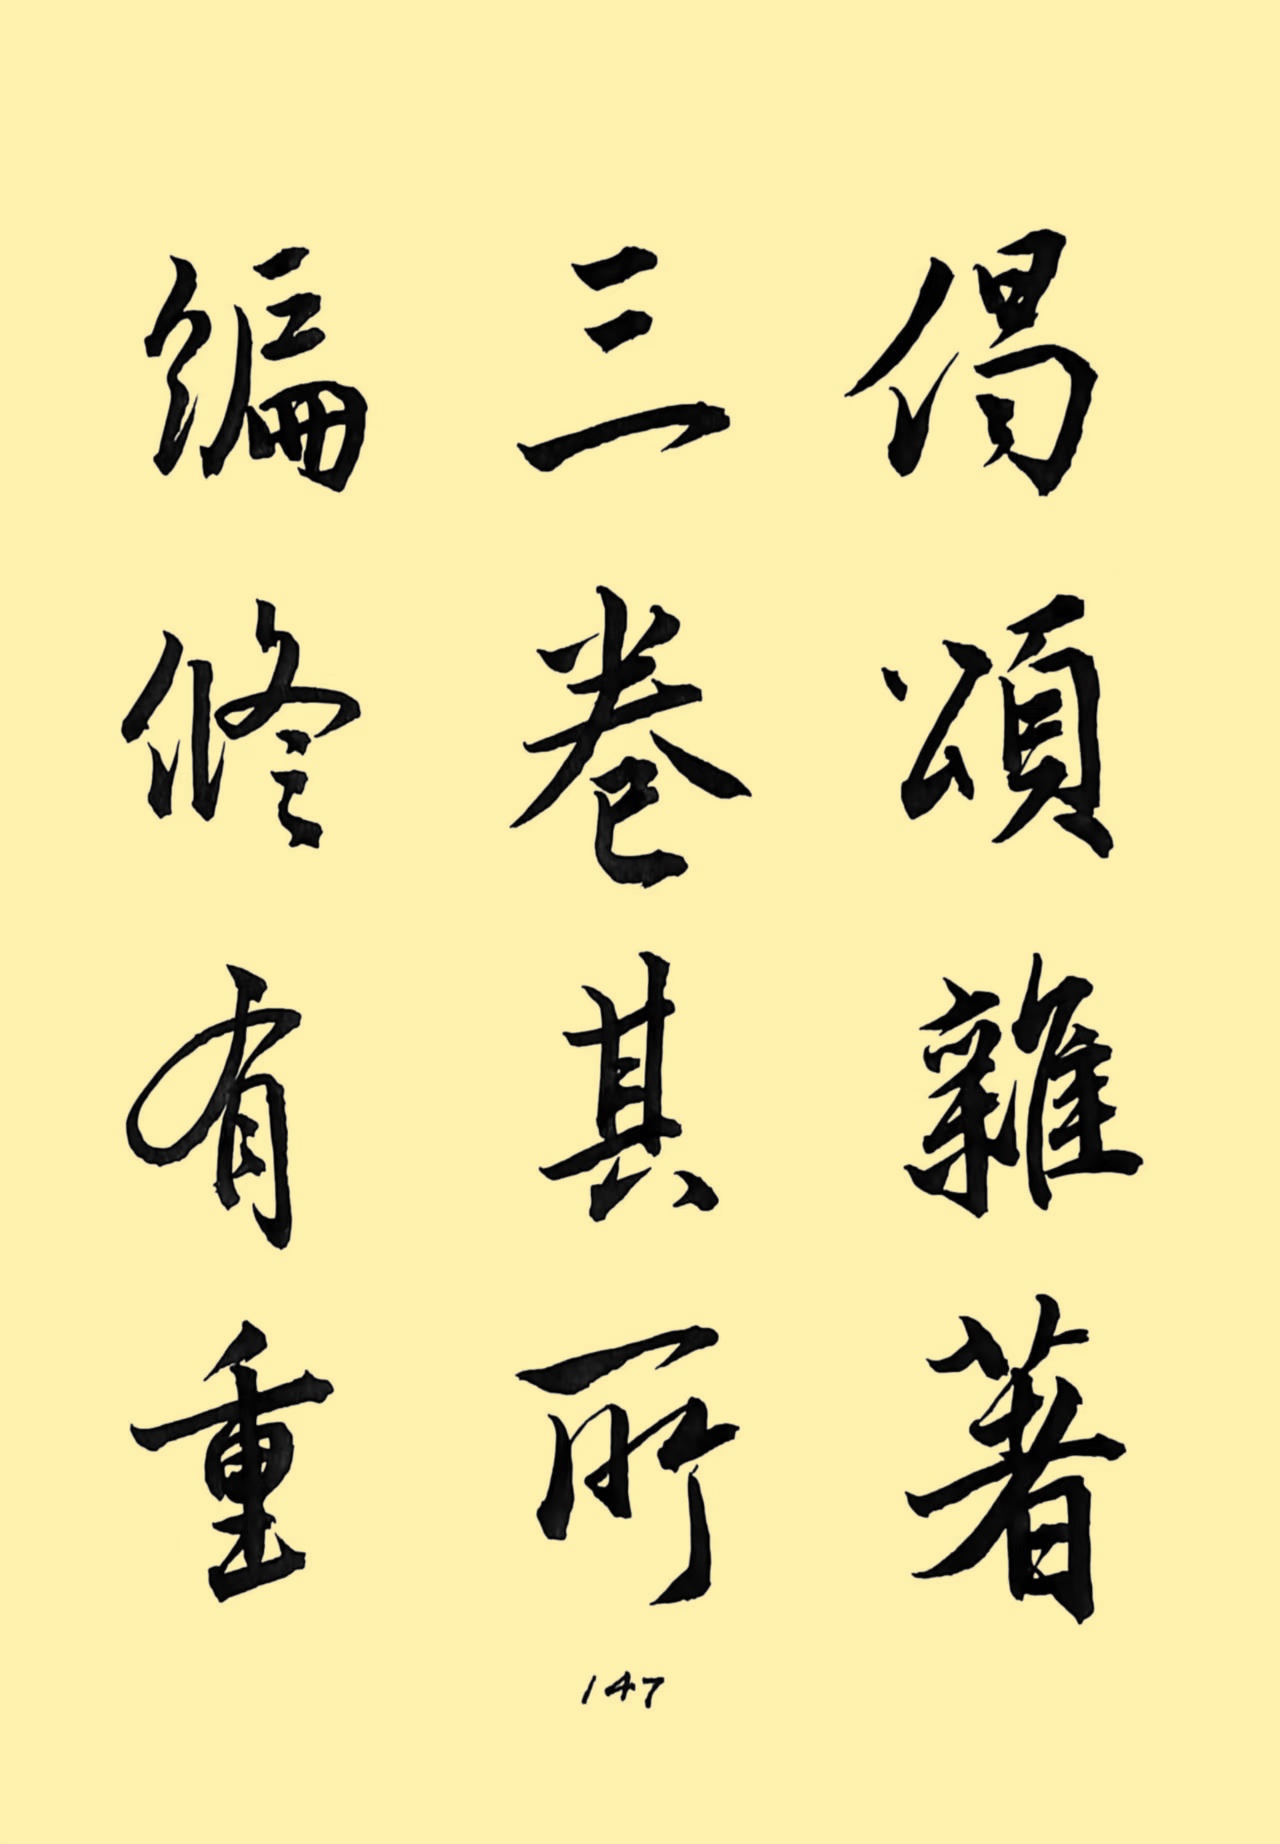 偈頌雜著
三卷其所
編修有重
147